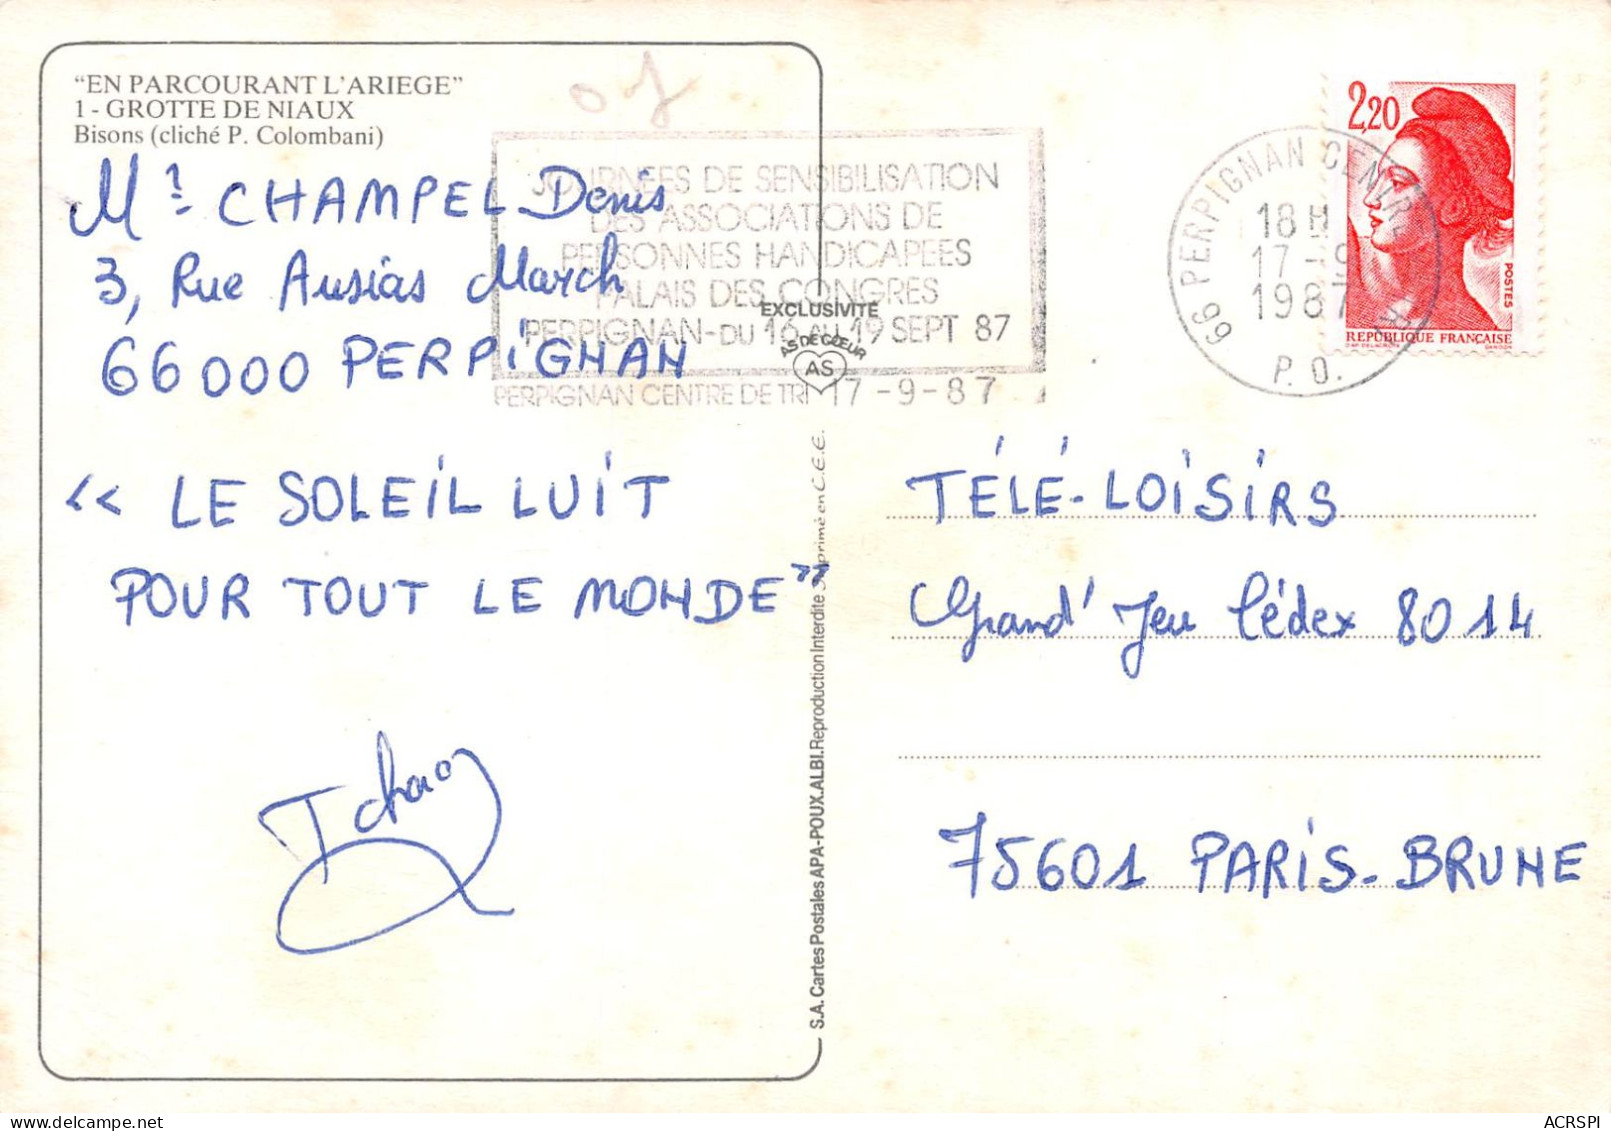 “EN PARCOURANT L'ARIEGE”
1 - GROTTE DE NIAUX
Bisons (cliché P. Colombani)
Mr CHAMPEL Denis
3, Rue Ausias March
66000 PERPIGNAN
« LE SOLEIL LUIT
POUR TOUT LE MONDE »
Tchao
JOURNEES DE SENSIBILISATION
DES ASSOCIATIONS DE
PERSONNES HANDICAPEES
PALAIS DES CONGRES
PERPIGNAN-DU 16 AU 19 SEPT 87
PERPIGNAN CENTRE DE TRI 17-9-87
EXCLUSIVITÉ
AS DE CŒUR
AS
S.A. Cartes Postales APA-POUX.ALBI. Reproduction Interdite Imprimé en C.E.E.
66 PERPIGNAN CENTRE
18H
17-9
1987
P.O.
2,20
POSTES
REPUBLIQUE FRANÇAISE
TÉLÉ-LOISIRS
Grand Jeu Cédex 8014
75601 PARIS-BRUNE
ACRSPI